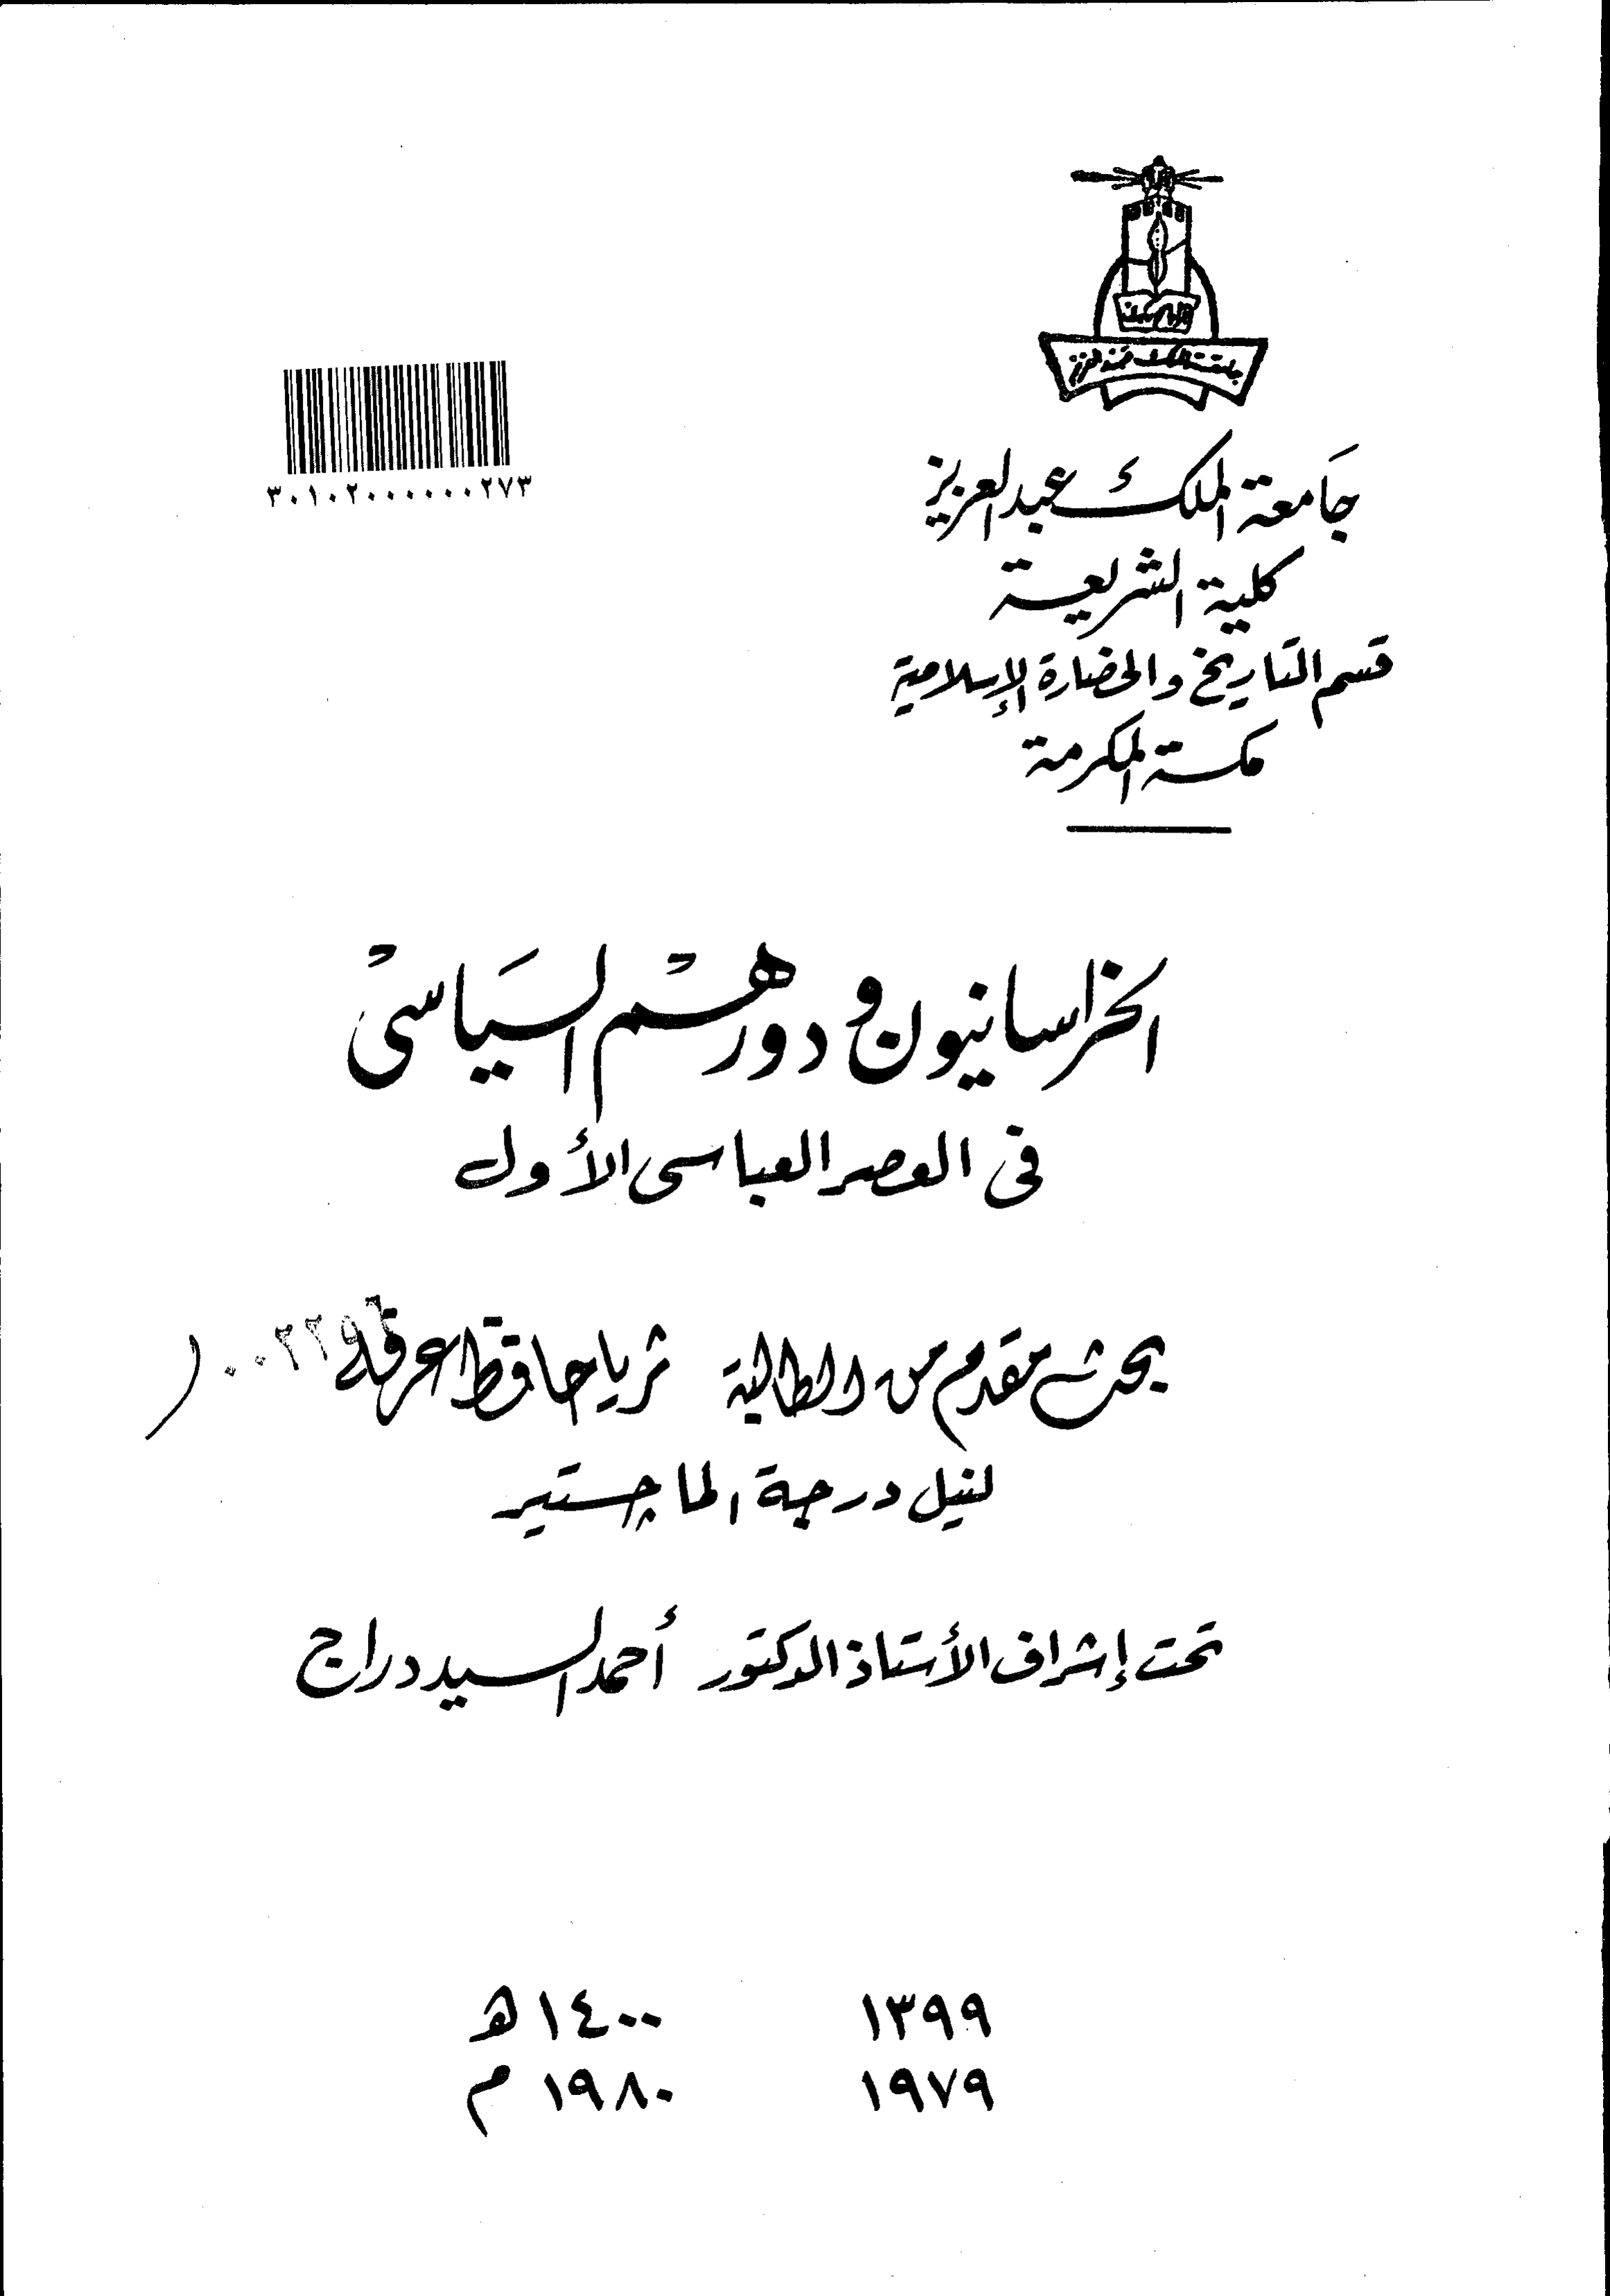 جامعة الملك عبد العزيز
جَامعة الملك عبد العزيز
كلية الشريعة
قسم التاريخ والحضارة الإسلامية
مكة المكرمة
٣٠١٠٢٠٠٠٠٠٠٢٧٣
الخراسانيون ودورهم السيَاسى
فى العصر العباسى الأول
بحث مقدم من الطالبة ثريا حافظ عرفه
لنيل درجة الماجستير
تحت إشراف الأستاذ الدكتور أحمد السيد دراج
١٣٩٩ ١٤٠٠ ه
١٩٧٩ ١٩٨٠ م